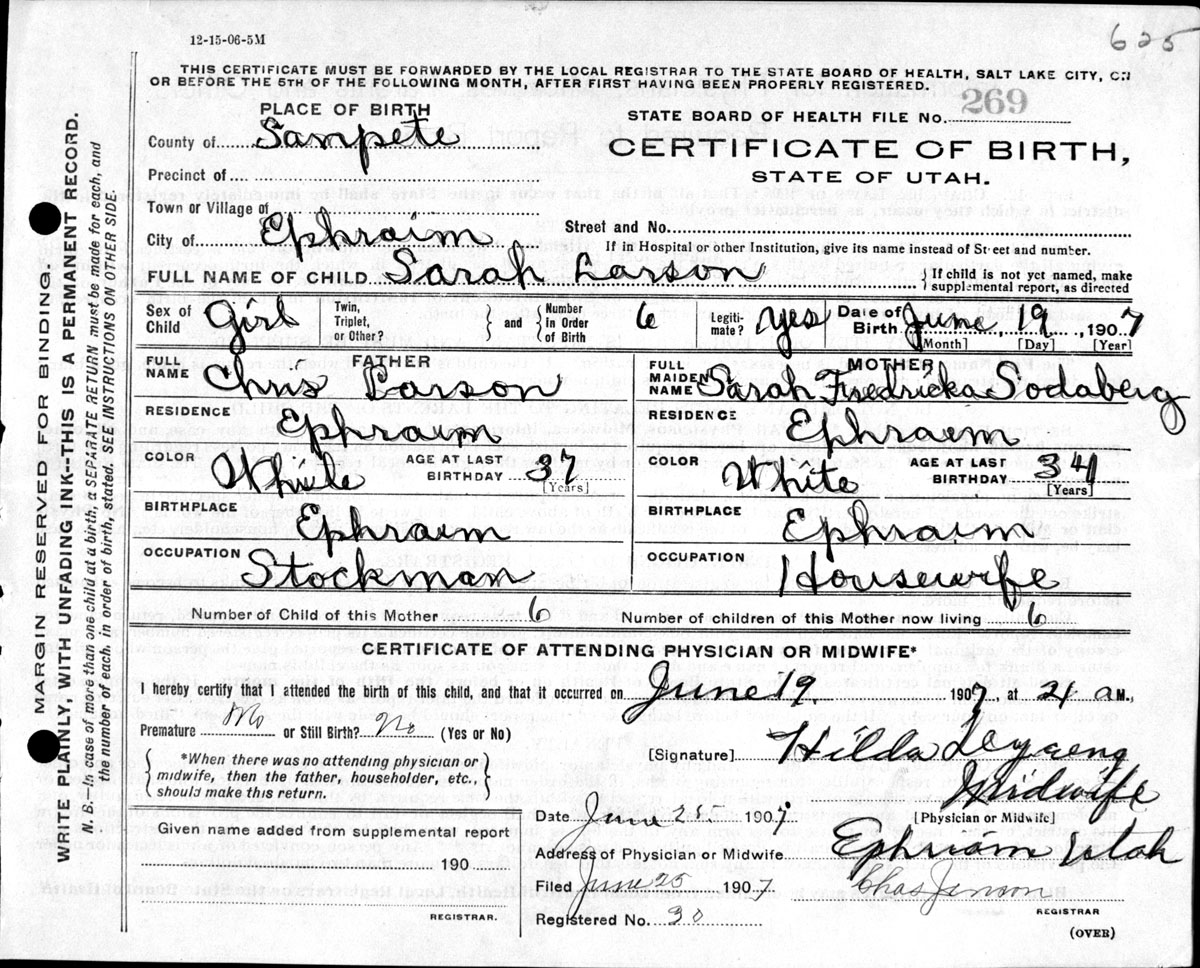 12-15-06-5M
625
THIS CERTIFICATE MUST BE FORWARDED BY THE LOCAL REGISTRAR TO THE STATE BOARD OF HEALTH, SALT LAKE CITY, ON
OR BEFORE THE 5TH OF THE FOLLOWING MONTH, AFTER FIRST HAVING BEEN PROPERLY REGISTERED.
MARGIN RESERVED FOR BINDING.
WRITE PLAINLY, WITH UNFADING INK--THIS IS A PERMANENT RECORD.
N. B.—In case of more than one child at a birth, a SEPARATE RETURN must be made for each, and
the number of each, in order of birth, stated. SEE INSTRUCTIONS ON OTHER SIDE.
PLACE OF BIRTH
STATE BOARD OF HEALTH FILE No. 269
County of Sampete
CERTIFICATE OF BIRTH,
STATE OF UTAH.
Precinct of
Town or Village of
Street and No.
City of Ephraim
If in Hospital or other Institution, give its name instead of Street and number.
FULL NAME OF CHILD Sarah Larson
If child is not yet named, make
supplemental report, as directed
Sex of Child Girl Twin, Triplet, or Other? and Number in Order of Birth 6 Legiti-mate? yes Date of Birth June 19, 1907
[Month] [Day] [Year]
FATHER
FULL NAME Chris Larson
RESIDENCE Ephraim
COLOR White AGE AT LAST BIRTHDAY 37
[Years]
BIRTHPLACE Ephraim
OCCUPATION Stockman
MOTHER
FULL MAIDEN NAME Sarah Fredricka Sodaberg
RESIDENCE Ephraem
COLOR White AGE AT LAST BIRTHDAY 34
[Years]
BIRTHPLACE Ephraim
OCCUPATION Housewife
Number of Child of this Mother 6 Number of children of this Mother now living 6
CERTIFICATE OF ATTENDING PHYSICIAN OR MIDWIFE*
I hereby certify that I attended the birth of this child, and that it occurred on June 19. 1907, at a M.,
Premature No or Still Birth? No (Yes or No)
*When there was no attending physician or
midwife, then the father, householder, etc.,
should make this return.
[Signature] Hilda
Midwife
[Physician or Midwife]
Date June 25 1907
Given name added from supplemental report
190
REGISTRAR.
Address of Physician or Midwife Ephriam Utah
Filed June 25 1907 Chas Jenson
REGISTRAR
Registered No. 30
(OVER)